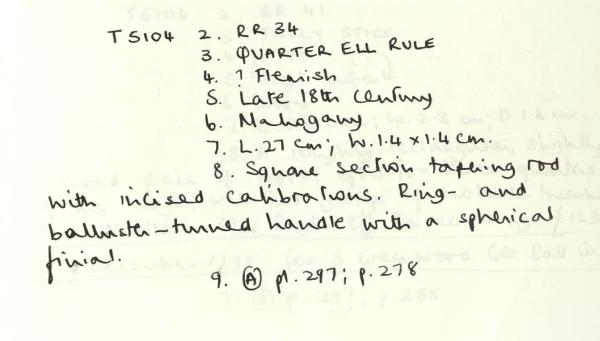 TS104 2. RR 34
3. QUARTER ELL RULE
4. ? Flemish
5. Late 18th century
6. Mahogany
7. L. 27 cm; W. 1.4 x 1.4 cm.
8. Square section tapering rod
with incised calibrations. Ring- and
balluster-turned handle with a spherical
finial.
9. (A) pl. 297; p. 278